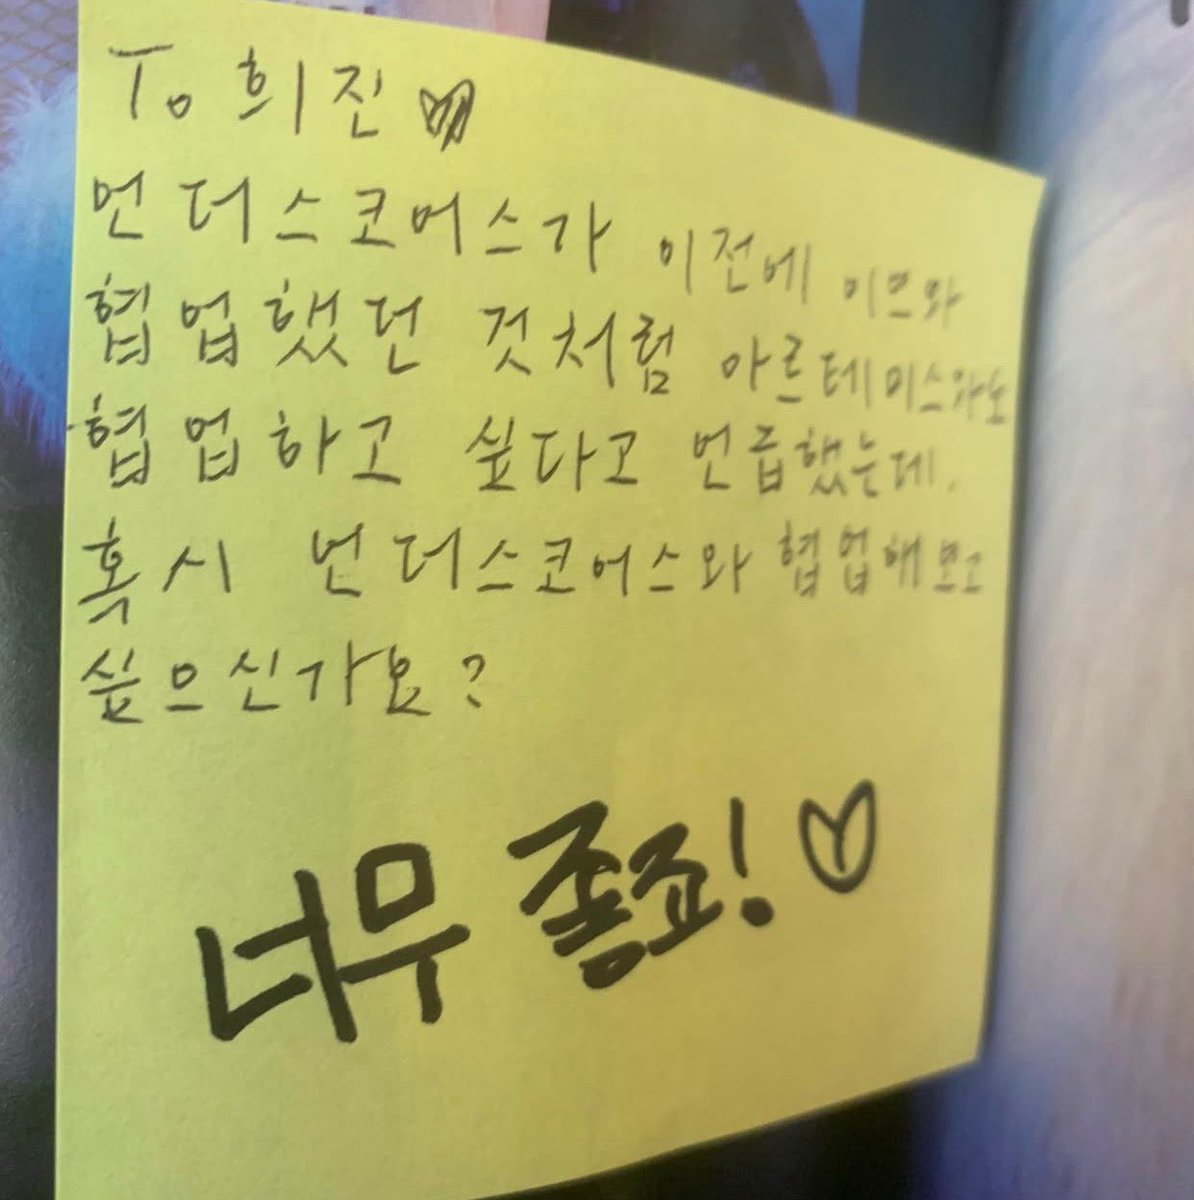 To 희진 ♡
언더스코어스가 이전에 이브와
협업했던 것처럼 아르테미스와도
협업하고 싶다고 언급했는데,
혹시 언더스코어스와 협업해보고
싶으신가요?
너무 좋죠! ♡